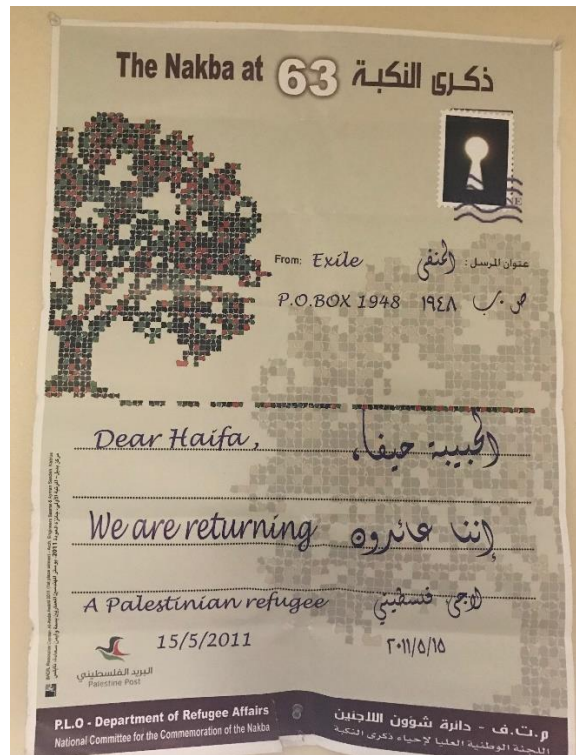 The Nakba at 63 ذكرى النكبة
From: Exile المنفى عنوان المرسل:
P.O.BOX 1948 ص.ب ١٩٤٨
Dear Haifa, الحبيبة حيفا،
We are returning إننا عائدون
A Palestinian refugee لاجئ فلسطيني
15/5/2011 ٢٠١١/٥/١٥
البريد الفلسطيني
Palestine Post
P.L.O - Department of Refugee Affairs م.ت.ف - دائرة شؤون اللاجئين
National Committee for the Commemoration of the Nakba اللجنة الوطنية العليا لإحياء ذكرى النكبة